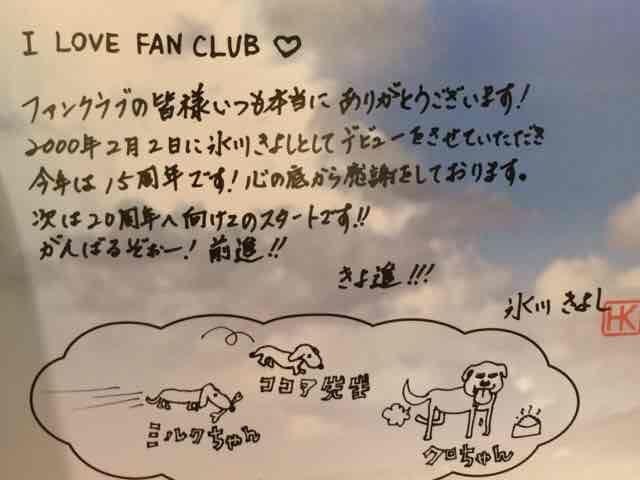 I LOVE FAN CLUB ♡
ファンクラブの皆様いつも本当にありがとうございます!
2000年2月2日に氷川きよしとしてデビューをさせていただき
今年は15周年です!心の底から感謝をしております。
次は20周年へ向けてのスタートです!!
がんばるぞぉー!前進!!
きよ進!!!
氷川きよし
HK
ココア先生
ミルクちゃん
クロちゃん